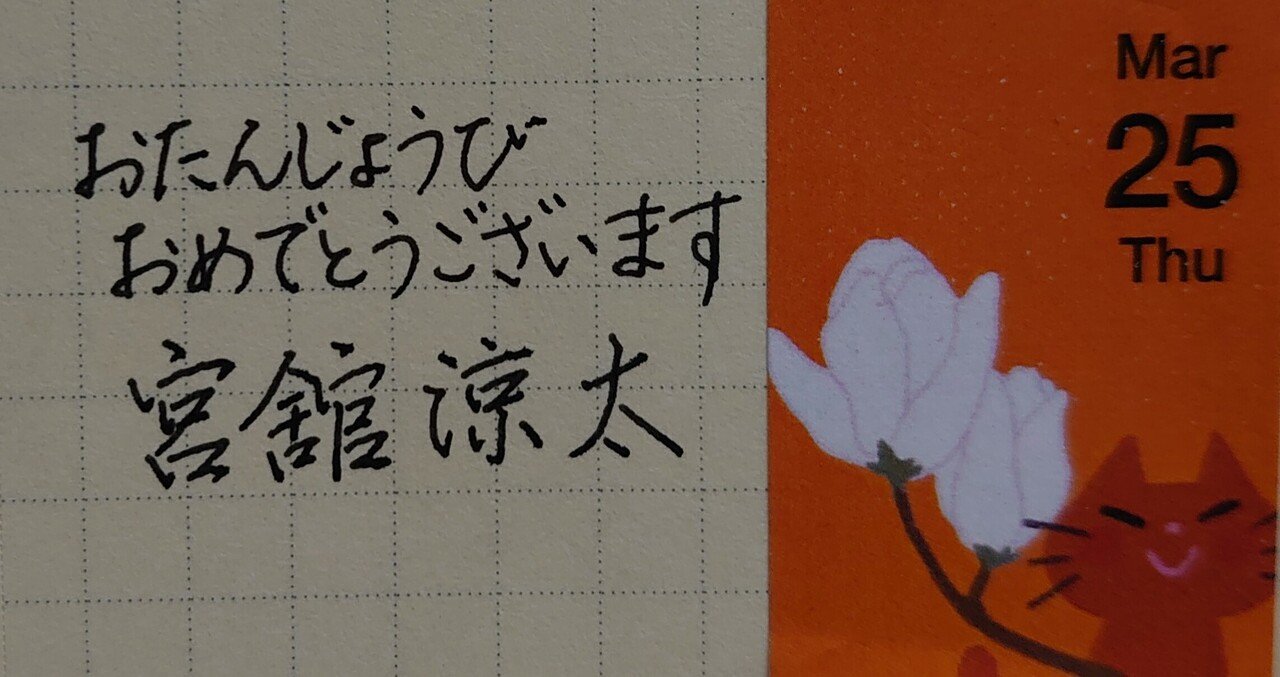 おたんじょうび
おめでとうございます
宮舘涼太
Mar
25
Thu